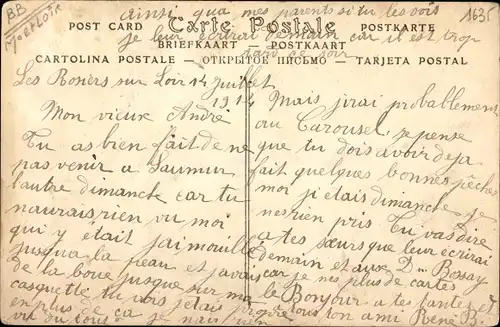 BB
Met Loire
ainsi qua mes parents si tu les vois
1631
je leur écrirai demain car il est trop
tard ce soir
Carte Postale
POST CARD
POSTKARTE
BRIEFKAART — POSTKAART
CARTOLINA POSTALE — ОТКРЫТОЕ ПИСЬМО — TARJETA POSTAL
Les Rosiers sur Loir 14 Juillet
1914
Mon vieux André
Tu as bien fait de ne
pas venir a Saumur
l'autre dimanche car tu
naurais rien vu moi
qui y était jai mouillé
jusqua la peau et javais
de la boue jusque sur ma
casquette tu vois jetais propre
en plus de ça je nai rien
vu du tous
Mais jirai probablement
au Carousel, je pense
que tu dois avoir deja
fait quelques bonnes pêche
moi jetais dimanche je
nes rien pris Tu vas dire
a tes sœurs que leur écrirai
demain et aux D Bossay
car je nes plus de cartes
le Bonjour a tes tantes et
tous ton ami René B